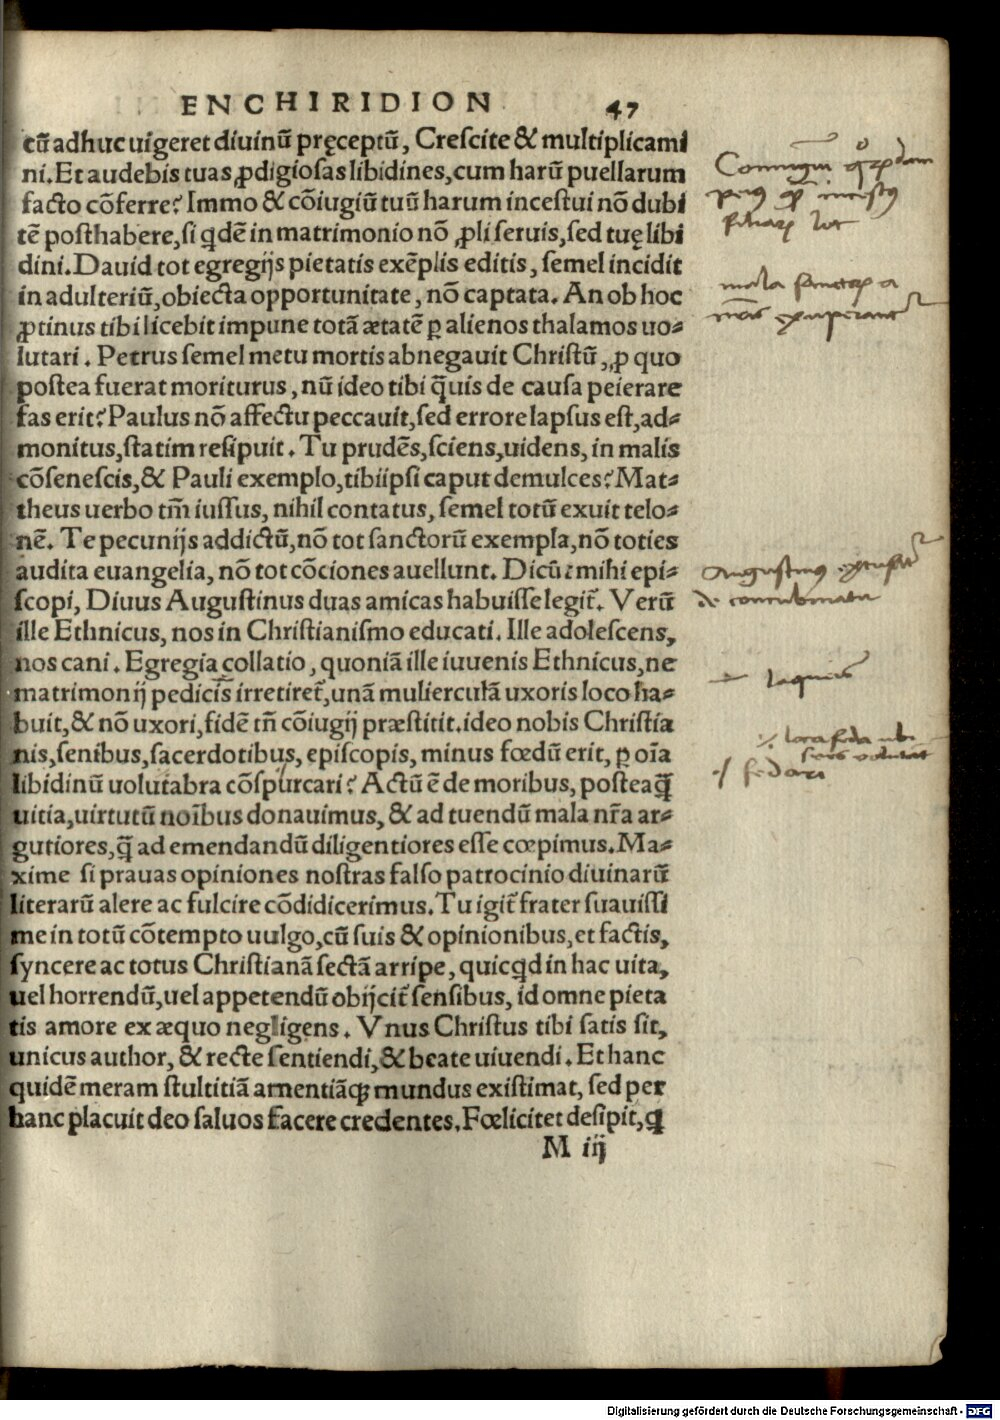 ENCHIRIDION 47
cū adhuc uigeret diuinū pręceptū, Crescite & multiplicami
ni. Et audebis tuas ꝓdigiosas libidines, cum harū puellarum
facto cōferre? Immo & cōiugiū tuū harum incestui nō dubi
tē posthabere, si qdē in matrimonio nō ꝓli seruis, sed tuę libi
dini. Dauid tot egregijs pietatis exēplis editis, semel incidit
in adulteriū, obiecta opportunitate, nō captata. An ob hoc
ꝓtinus tibi licebit impune totā ætatē ꝑ alienos thalamos uo⸗
lutari. Petrus semel metu mortis abnegauit Christū, ꝓ quo
postea fuerat moriturus, nū ideo tibi q̄uis de causa peierare
fas erit? Paulus nō affectu peccauit, sed errore lapsus est, ad⸗
monitus, statim resipuit. Tu prudēs, sciens, uidens, in malis
cōsenescis, & Pauli exemplo, tibiipsi caput demulces? Mat⸗
theus uerbo tm̄ iussus, nihil contatus, semel totū exuit telo⸗
nē. Te pecunijs addictū, nō tot sanctorū exempla, nō toties
audita euangelia, nō tot cōciones auellunt. Dicūt mihi epi⸗
scopi, Diuus Augustinus duas amicas habuisse legit̄. Verū
ille Ethnicus, nos in Christianismo educati. Ille adolescens,
nos cani. Egregia collatio, quoniā ille iuuenis Ethnicus, ne
matrimonij pedicis irretiret̄, unā mulierculā uxoris loco ha⸗
buit, & nō uxori, fidē tn̄ cōiugij præstitit. ideo nobis Christia
nis, senibus, sacerdotibus, episcopis, minus fœdū erit, ꝑ oīa
libidinū uolutabra cōspurcari? Actū ē de moribus, posteaq̄
uitia, uirtutū noībus donauimus, & ad tuendū mala nr̄a ar⸗
gutiores, q̄ ad emendandū diligentiores esse cœpimus. Ma⸗
xime si prauas opiniones nostras falso patrocinio diuinarū
literarū alere ac fulcire cōdidicerimus. Tu igit̄ frater suauissi
me in totū cōtempto uulgo, cū suis & opinionibus, et factis,
syncere ac totus Christianā sectā arripe, quicqd in hac uita,
uel horrendū, uel appetendū obijcit̄ sensibus, id omne pieta
tis amore ex æquo negligens. Vnus Christus tibi satis sit,
unicus author, & recte sentiendi, & beate uiuendi. Et hanc
quidē meram stultitiā amentiāqꝫ mundus existimat, sed per
hanc placuit deo saluos facere credentes. Fœlicitet desipit, q
M iij
filiaꝝ lot
mala
Augustinus
de concubinatu
laqueis
fedari
Digitalisierung gefördert durch die Deutsche Forschungsgemeinschaft - DFG